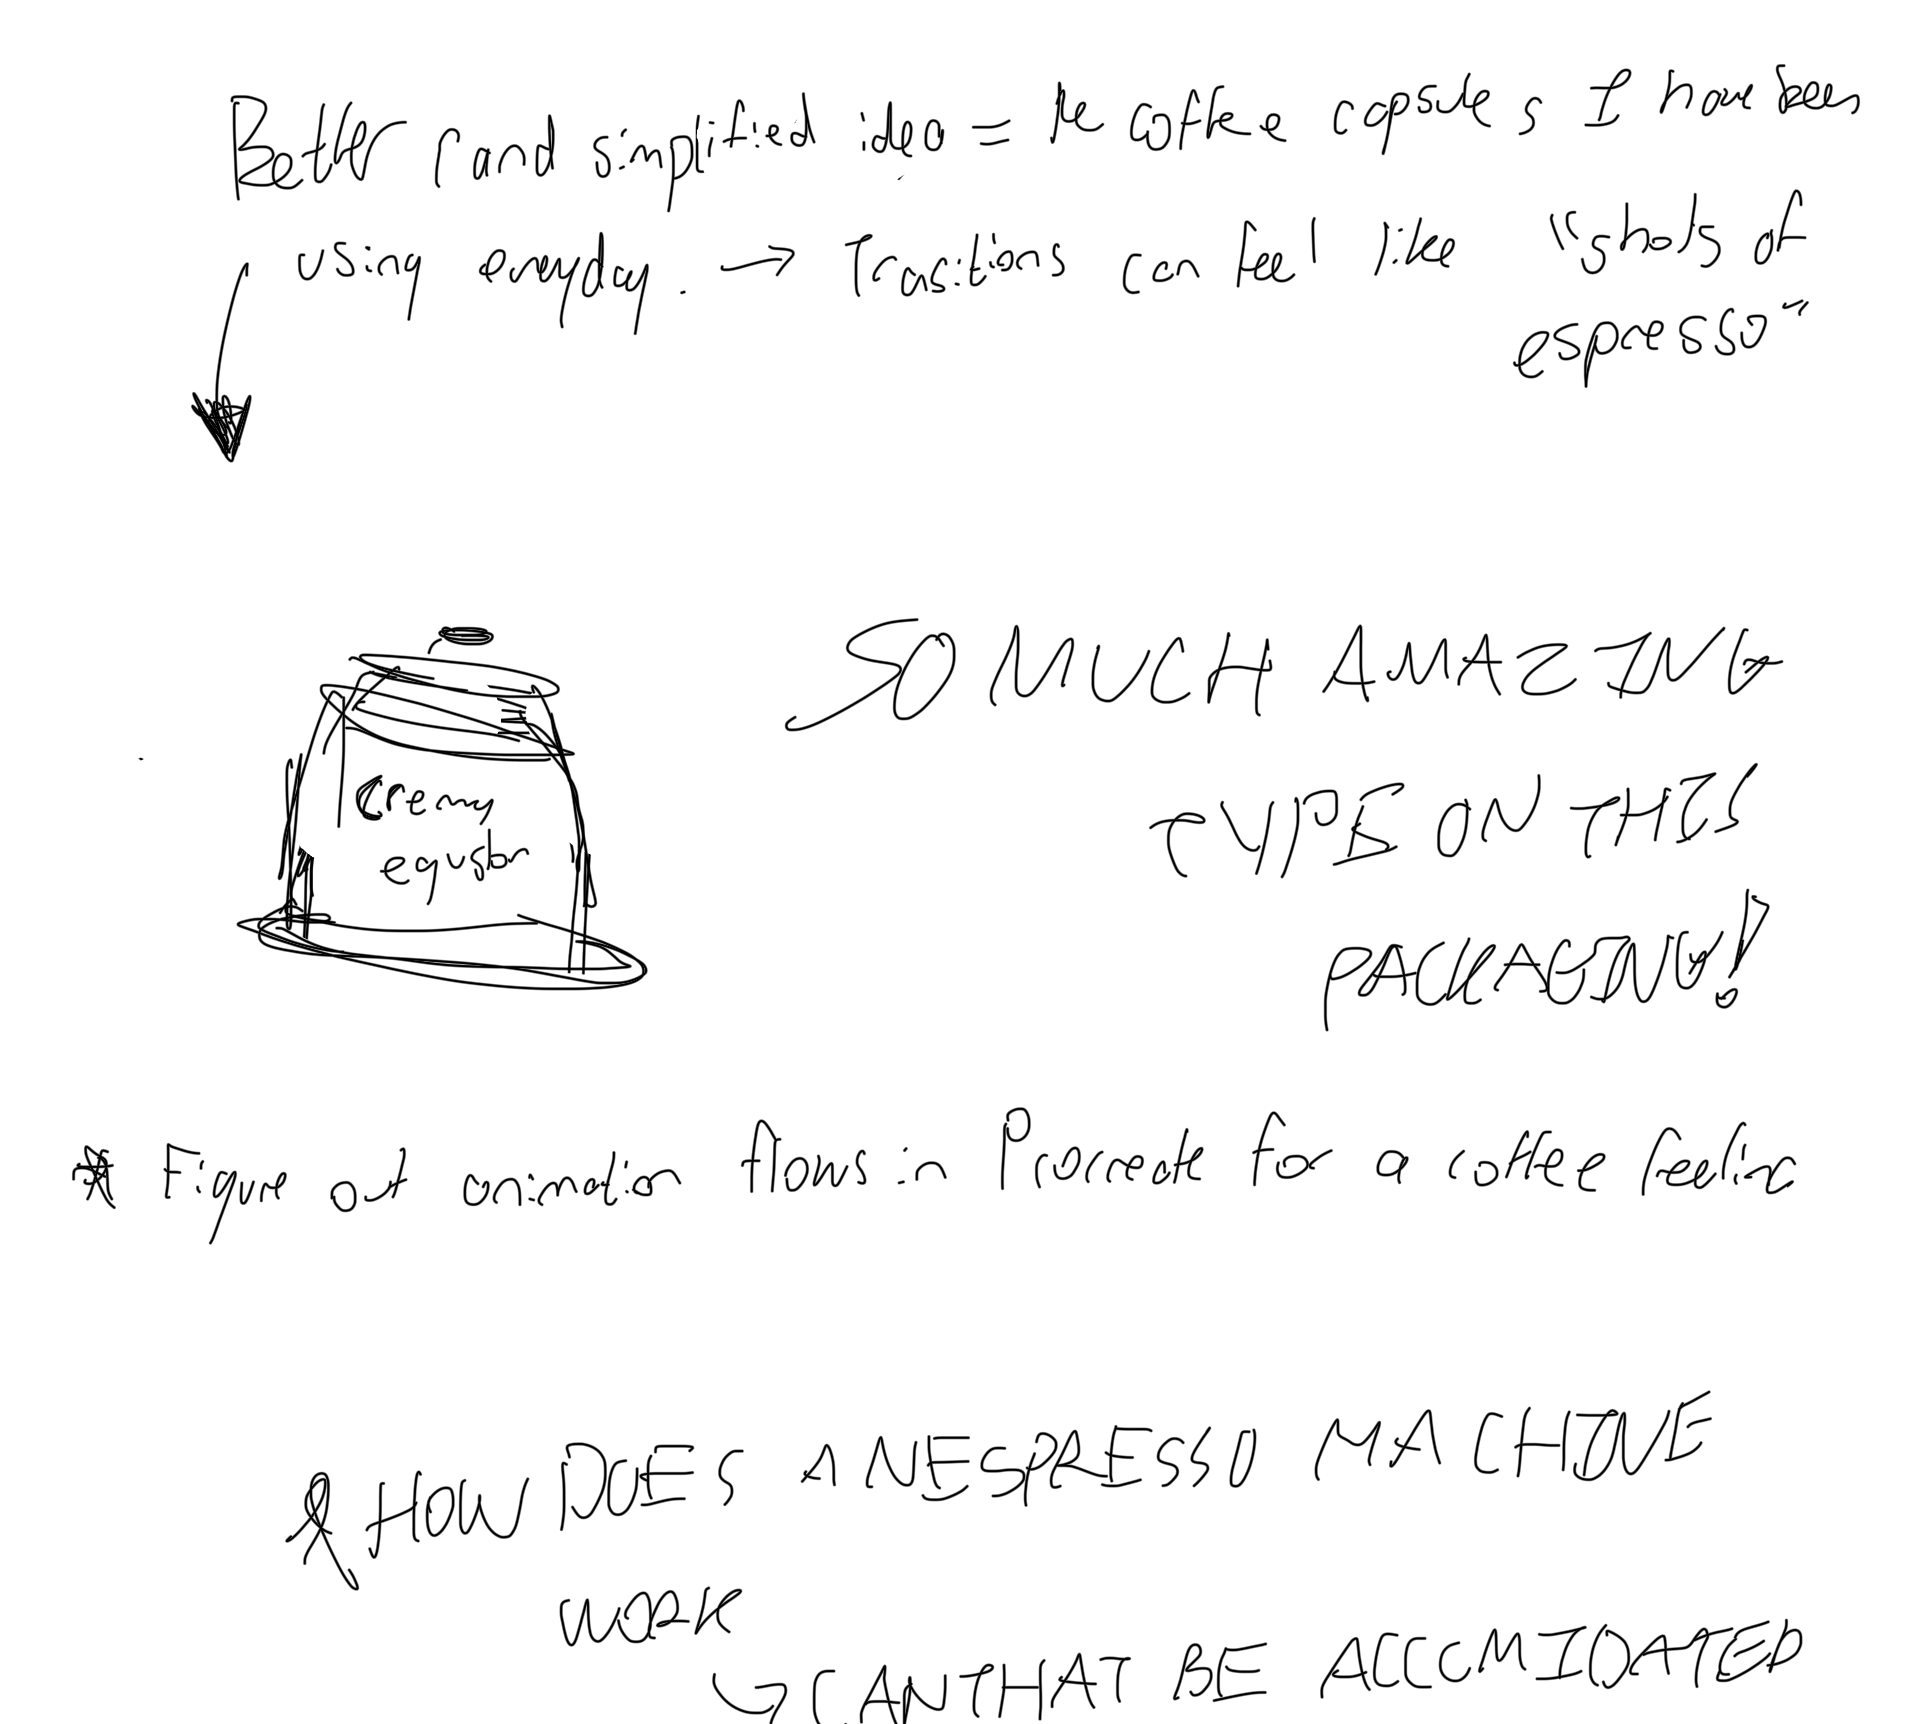 Better rand simplified idea = the coffee capsules I have been
using everyday. → Trasitions can feel like "shots of
espresso"
SO MUCH AMAZING
TYPE ON THIS
PACKAGING!
Cremy
equstor
* Figure out animation flows in Procreate for a coffee feeling
& HOW DOES A NESPRESSO MACHINE
WORK
↳ CAN THAT BE ACCOMIDATED